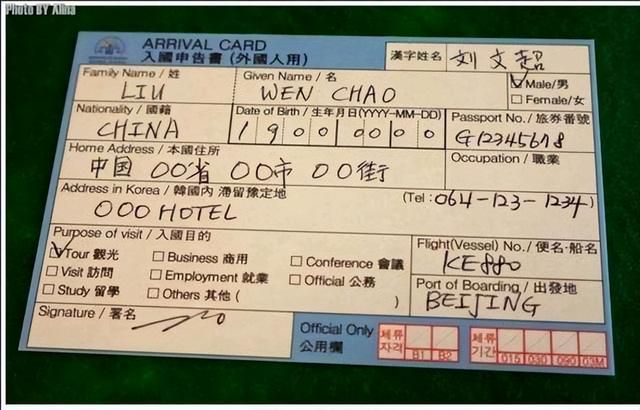 Photo BY Alina
ARRIVAL CARD
入國申告書 (外國人用)
漢字姓名 刘文超
Family Name / 姓
LIU
Given Name / 名
WEN CHAO
Male/男
Female/女
Nationality / 國籍
CHINA
Date of Birth / 生年月日(YYYY-MM-DD)
1 9 0 0 0 0 0 0
Passport No./ 旅券番號
G12345678
Home Address / 本國住所
中国 〇〇省 〇〇市 〇〇街
Occupation / 職業
Address in Korea / 韓國內 滯留豫定地
OOO HOTEL
(Tel: 064-123-1234)
Purpose of visit / 入國目的
Tour 觀光
Business 商用
Conference 會議
Visit 訪問
Employment 就業
Official 公務
Study 留學
Others 其他 ( )
Flight(Vessel) No./ 便名·船名
KE880
Port of Boarding/ 出發地
BEIJING
Signature / 署名
Official Only
公用欄
체류
자격
B1 B2
체류
기간
015 030 090 03M